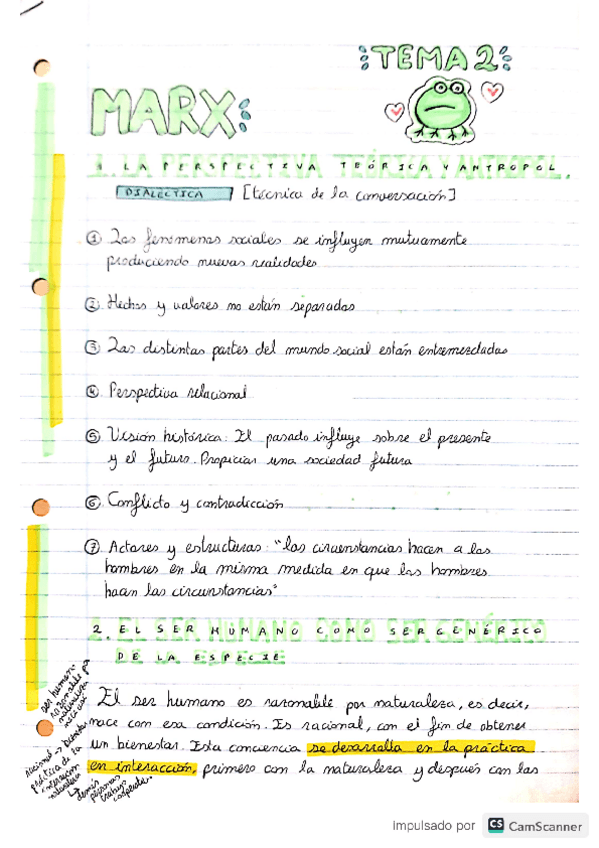 TEMA 2
MARX
1. LA PERSPECTIVA TEÓRICA Y ANTROPOL.
DIALÉCTICA [técnica de la conversación]
① Los fenómenos sociales se influyen mutuamente
produciendo nuevas realidades
② Hechos y valores no están separados
③ Las distintas partes del mundo social están entremezcladas
④ Perspectiva relacional
⑤ Visión histórica: El pasado influye sobre el presente
y el futuro. Propicias una sociedad futura
⑥ Conflicto y contradicción
⑦ Actores y estructuras: "las circunstancias hacen a los
hombres en la misma medida en que los hombres
hacen las circunstancias"
2. EL SER HUMANO COMO SER GENÉRICO
DE LA ESPECIE
El ser humano es razonable por naturaleza, es decir,
nace con esa condición. Es racional, con el fin de obtener
un bienestar. Esta conciencia se desarrolla en la práctica
en interacción, primero con la naturaleza y después con las
ser humano
razonable por
naturaleza
Racional →
práctica de la
interacción
naturaleza
↳ demás
personas
trabajo
Impulsado por CS CamScanner